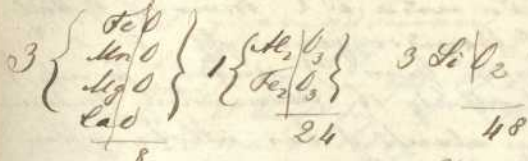 3 { Fe O
Mn O
Mg O
Ca O } 1 { Al2 O3
Fe2 O3 } 3 Si O2
8 24 48